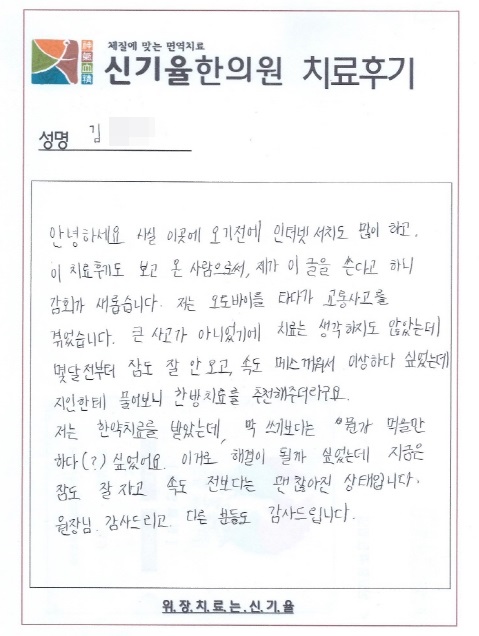 체질에 맞는 면역치료
신기율한의원 치료후기
성명 김
안녕하세요 사실 이곳에 오기전에 인터넷 서치도 많이 하고,
이 치료후기도 보고 온 사람으로써, 제가 이 글을 쓴다고 하니
감회가 새롭습니다. 저는 오토바이를 타다가 교통사고를
겪었습니다. 큰 사고가 아니었기에 치료는 생각하지도 않았는데
몇달전부터 잠도 잘 안오고, 속도 메스꺼워서 이상하다 싶었는데
지인한테 물어보니 한방치료를 추천해주더라구요.
저는 한약치료를 받았는데, 막 쓰기보다는 뭔가 먹을만
하다(?) 싶었어요. 이거로 해결이 될까 싶었는데 지금은
잠도 잘 자고 속도 전보다는 괜찮아진 상태입니다.
원장님. 감사드리고. 다른 분들도 감사드립니다.
위.장.치.료.는.신.기.율